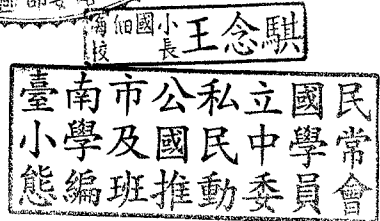 海佃國小
校長
王念騏
臺南市公私立國民
小學及國民中學常
態編班推動委員會